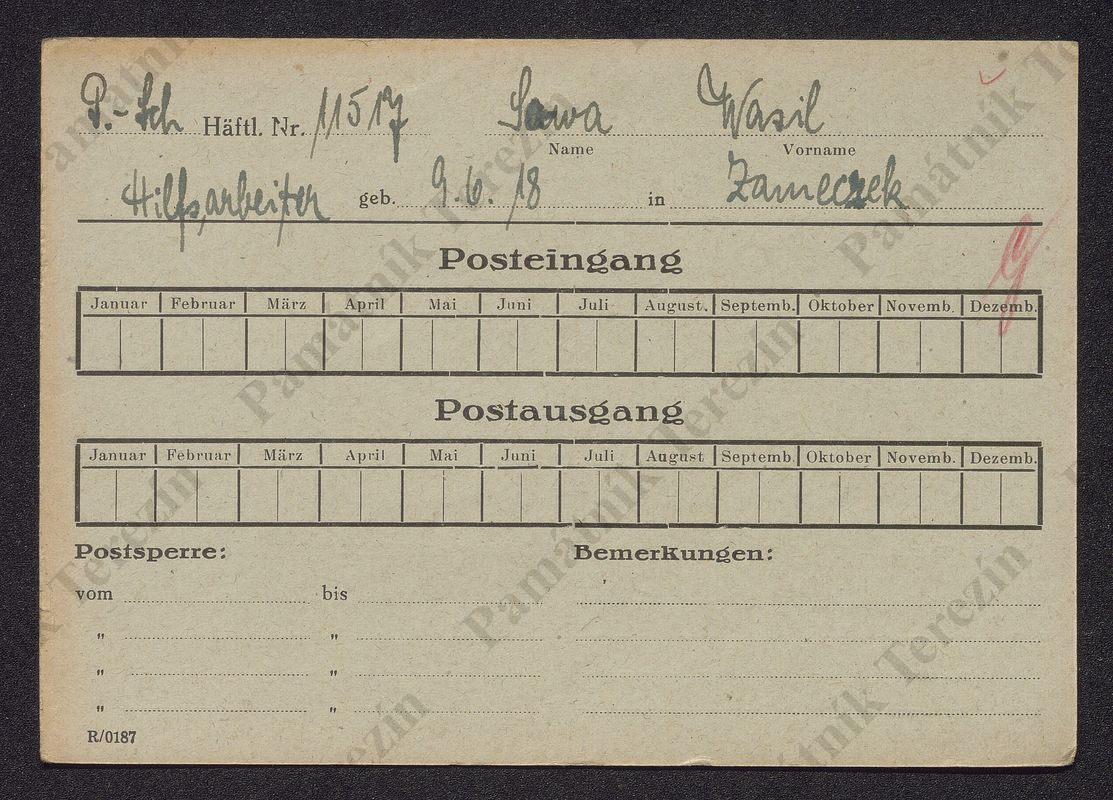 P.-Sch Häftl. Nr. 11517 Sawa Wasil
Name Vorname
Hilfsarbeiter geb. 9.6.18 in Zameczek
Posteingang
Januar Februar März April Mai Juni Juli August. Septemb. Oktober Novemb. Dezemb.
Postausgang
Januar Februar März April Mai Juni Juli August Septemb. Oktober Novemb. Dezemb.
Postsperre: Bemerkungen:
vom bis
" "
" "
" "
R/0187
Památník Terezín